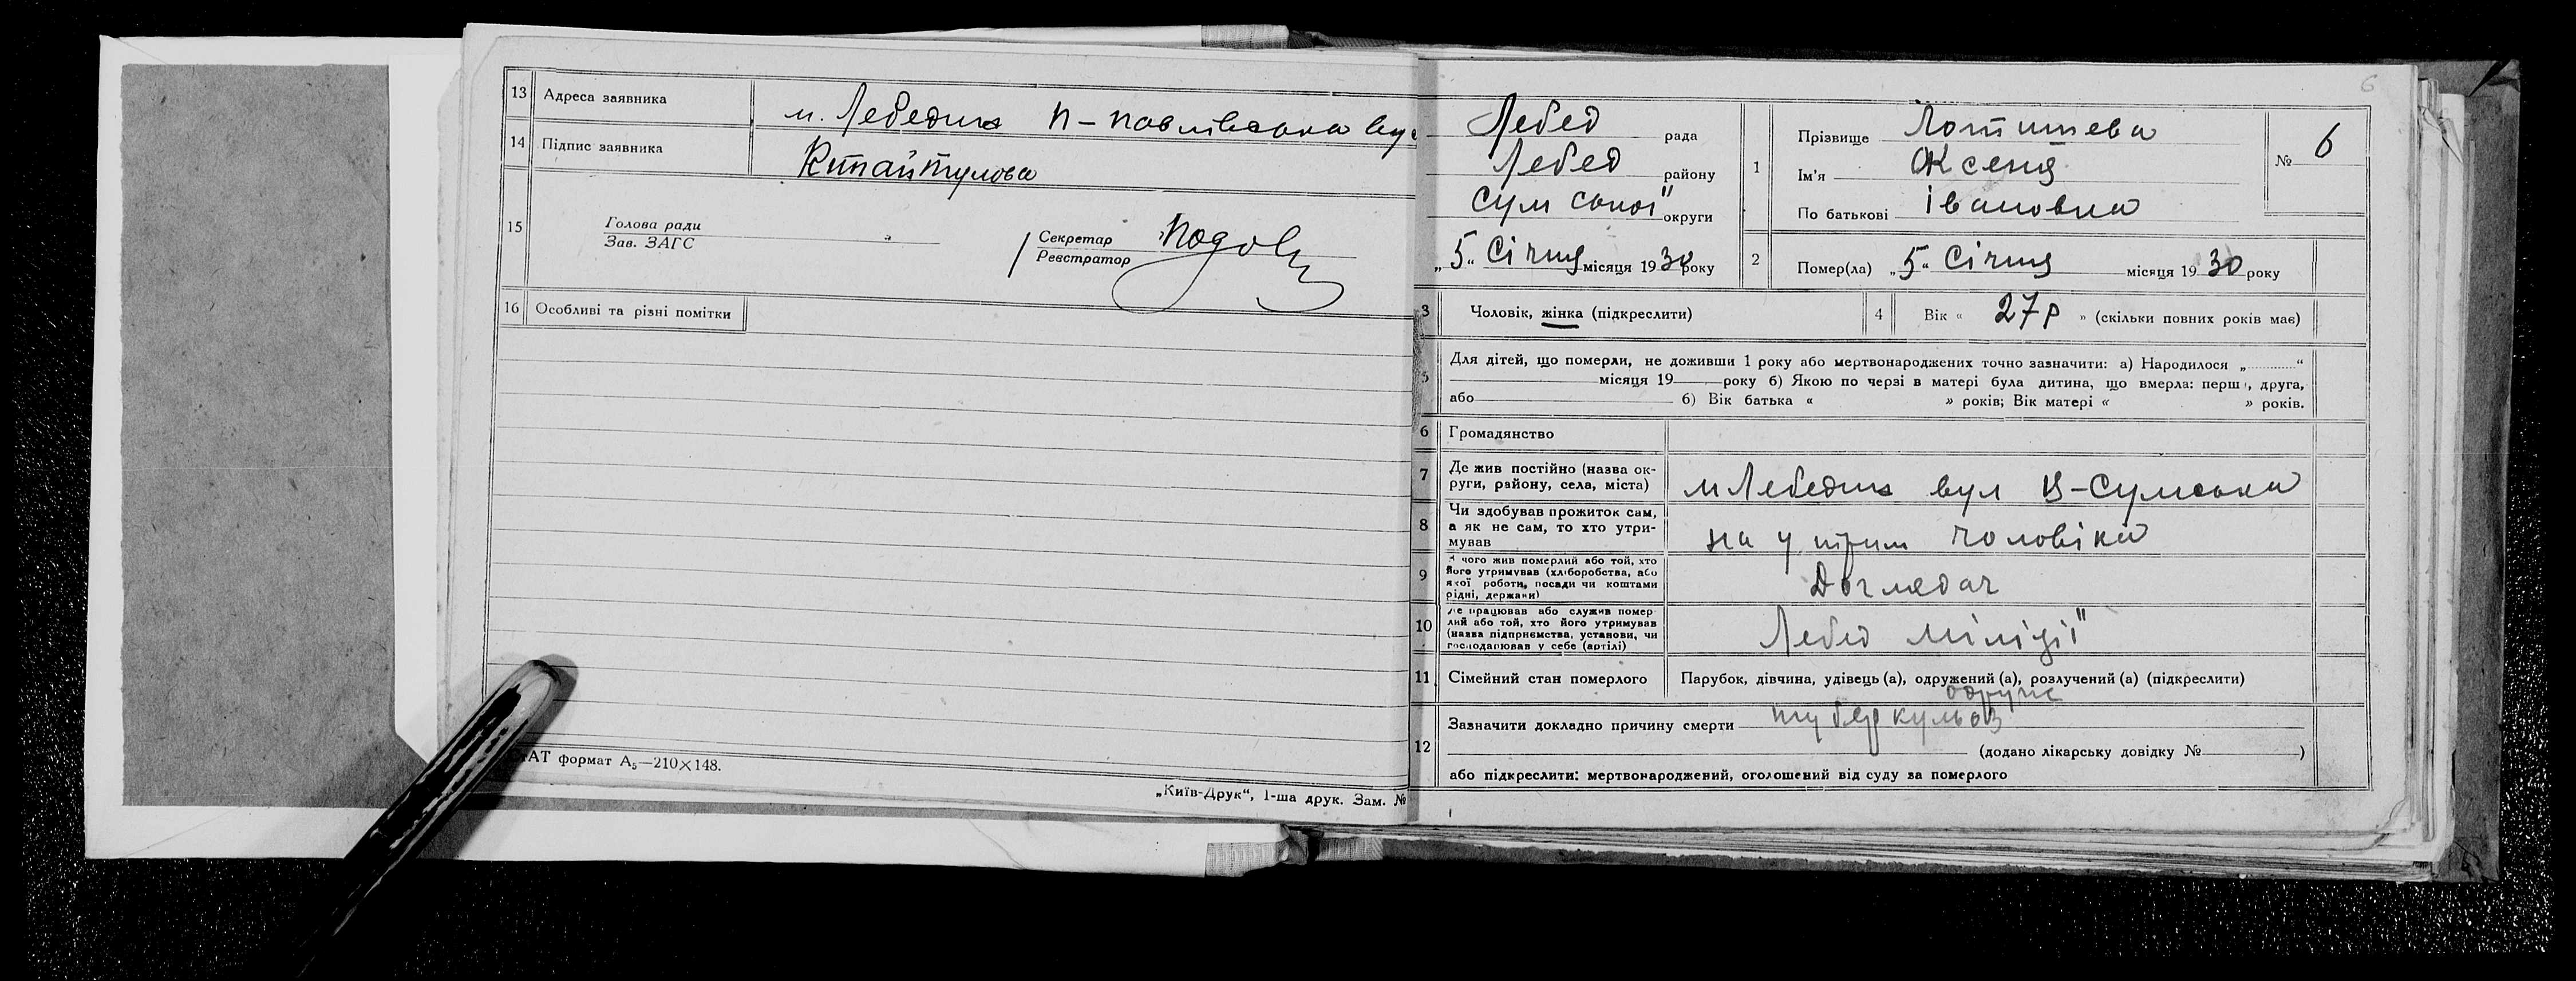 13 Адреса заявника м. Лебедин П-Павлівська вул
14 Підпис заявника
15 Голова ради
Зав. ЗАГС
Секретар
Реєстратор
16 Особливі та різні помітки
АТ формат А₅—210×148.
„Київ-Друк“, 1-ша друк. Зам. №
6
Лебед рада
Лебед району
Сумської округи
„5“ Січня місяця 1930 року
1 Прізвище
Ім'я Оксеня
По батькові Івановна
№ 6
2 Помер(ла) „5“ Січня місяця 1930 року
3 Чоловік, жінка (підкреслити)
4 Вік « 27 р » (скільки повних років має)
5 Для дітей, що померли, не доживши 1 року або мертвонароджених точно зазначити: а) Народилося „ “
місяця 19 року б) Якою по черзі в матері була дитина, що вмерла: перш , друга,
або б) Вік батька « » років; Вік матері « » років.
6 Громадянство
7 Де жив постійно (назва ок-
руги, району, села, міста)
м Лебедин вул В-Сумська
8 Чи здобував прожиток сам,
а як не сам, то хто утри-
мував
на утрим чоловіка
9 чого жив померлий або той, хто
його утримував (хліборобства, або
якої роботи, посади чи коштами
рідні, держави)
Доглядач
10 де працював або служив помер-
лий або той, хто його утримував
(назва підприємства, установи, чи
господарював у себе (артілі)
Лебед міліції
11 Сімейний стан померлого Парубок, дівчина, удівець (а), одружений (а), розлучений (а) (підкреслити)
одруже
12 Зазначити докладно причину смерти туберкульоз
(додано лікарську довідку № )
або підкреслити: мертвонароджений, оголошений від суду за померлого